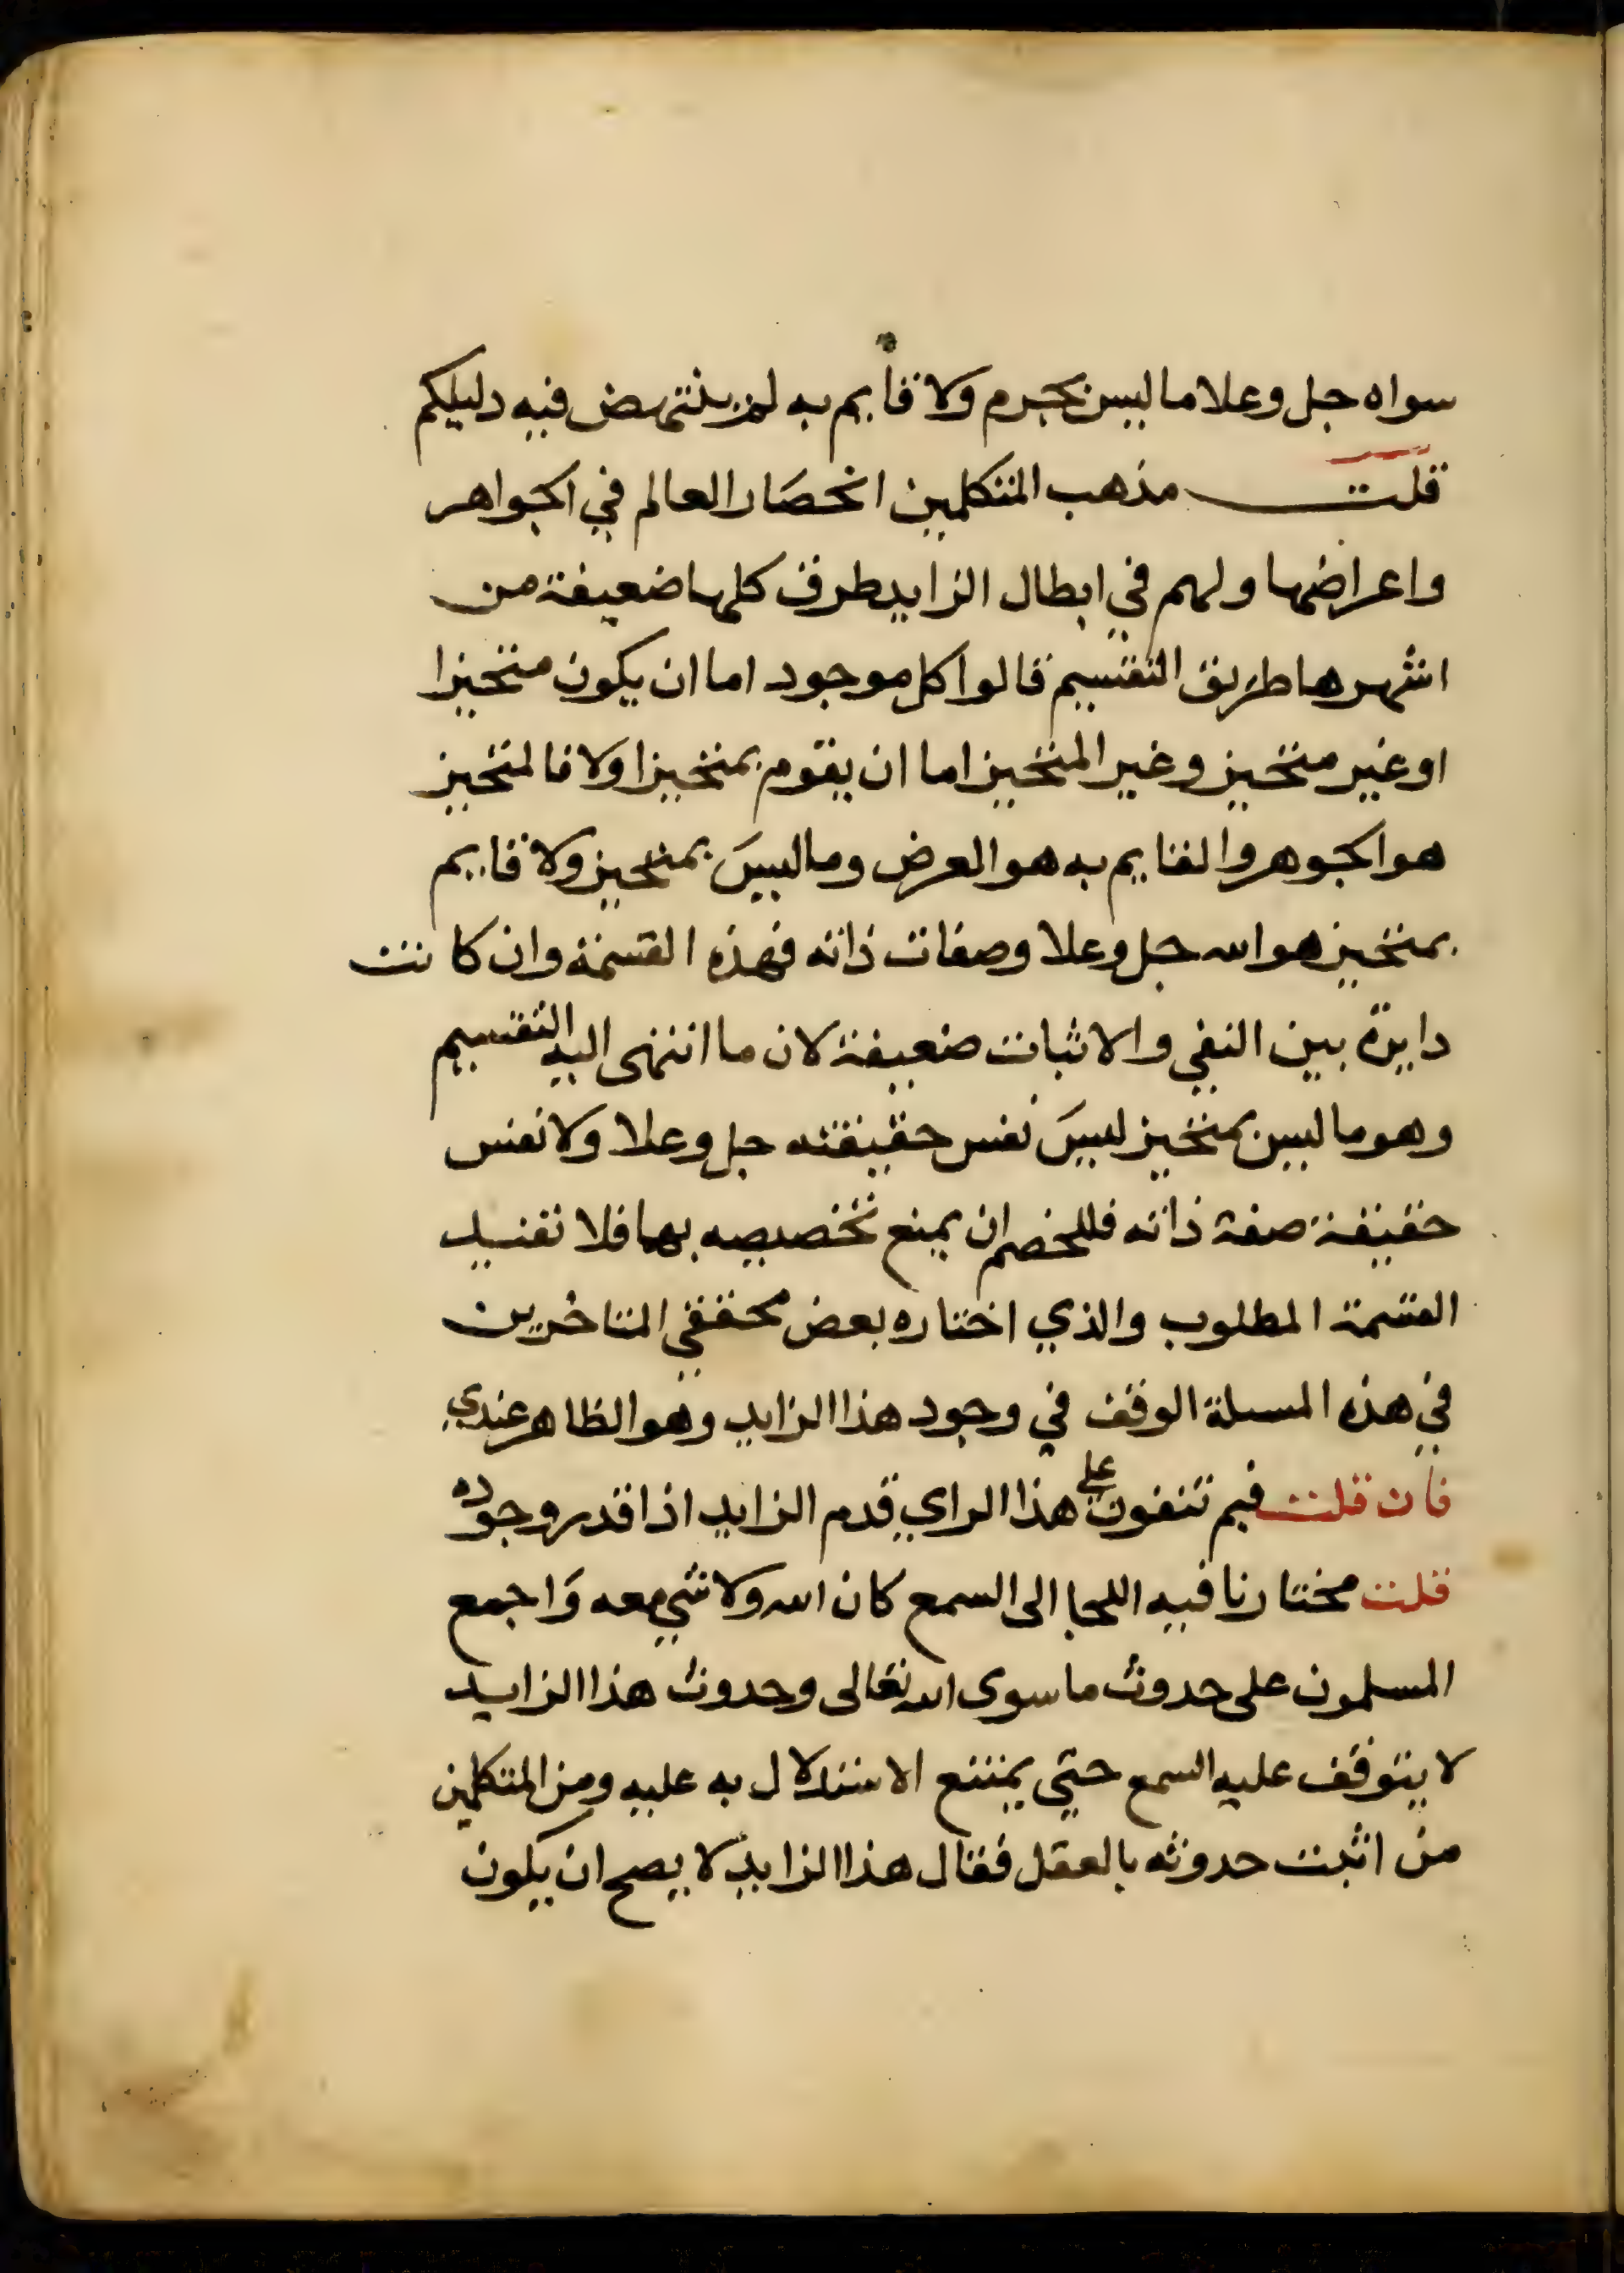 سواه جل وعلا ما ليس بجرم ولا قايم به لم ينتهض فيه دليلكم
قلت مذهب المتكلمين انحصار العالم في الجواهر
واعراضها ولهم في ابطال الزايد طرق كلها ضعيفة من
اشهرها طريق التقسيم قالوا كل موجود اما ان يكون متحيزا
او غير متحيز وغير المتحيز اما ان يقوم بمتحيز اولا فالمتحيز
هو الجوهر والقايم به هو العرض وما ليس بمتحيز ولا قايم
بمتحيز هو الله جل وعلا وصفات ذاته فهذه القسمة وان كانت
دايرة بين النفي والاثبات ضعيفة لان ما انتهى اليه التقسيم
وهو ما ليس بمتحيز ليس نفس حقيقته جل وعلا ولا نفس
حقيقة صفة ذاته فللخصم ان يمنع تخصيصه بهما فلا تفيد
القسمة المطلوب والذي اختاره بعض محققي المتاخرين
في هذه المسلة الوقف في وجود هذا الزايد وهو الظاهر عندي
فان قلت فبم تنفون على هذا الراي قدم الزايد اذا قدر وجوده
قلت مختارنا فيه اللجا الى السمع كان الله ولا شي معه واجمع
المسلمون على حدوث ما سوى الله تعالى وحدوث هذا الزايد
لا يتوقف عليه السمع حتي يمتنع الاستدلال به عليه ومن المتكلمين
من اثبت حدوثه بالعقل فقال هذا الزايد لا يصح ان يكون